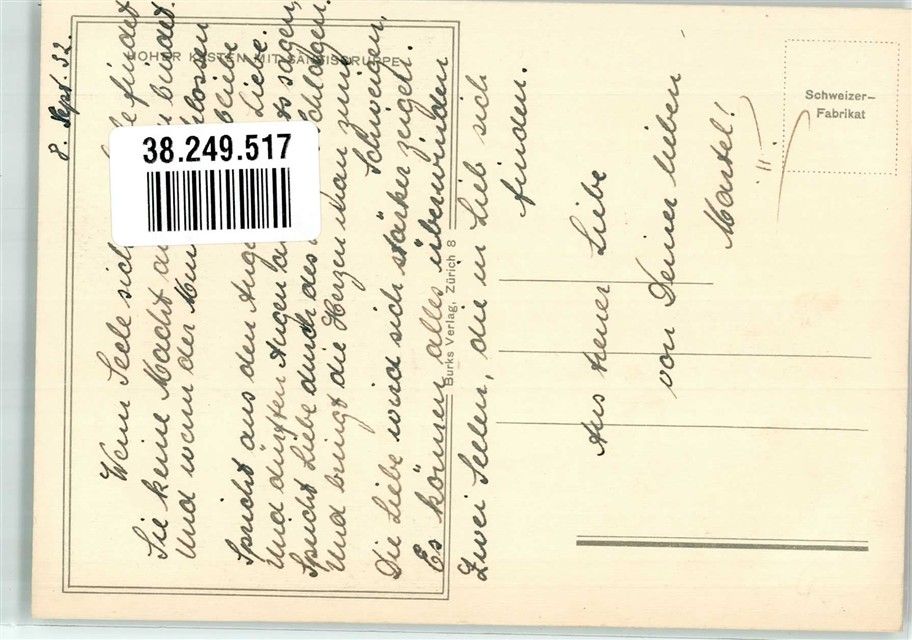 8. Sept. 32.
HOHER KASTEN MIT SÄNTISGRUPPE
Wenn Seele sich findet
Sie keine Macht bindet.
Und wenn der
Spricht aus den Liebe.
Und dürften Augen sagen,
Spricht Liebe durch des
Und bringt die Herzen man zum
Schweigen,
Die Liebe wird sich stärker zeigen.
Es können alles überwinden
Zwei Seelen, die in Lieb sich
finden.
Burks Verlag, Zürich 8
Schweizer-
Fabrikat
Aus treuer Liebe
von Deiner lieben
Martel!
38.249.517